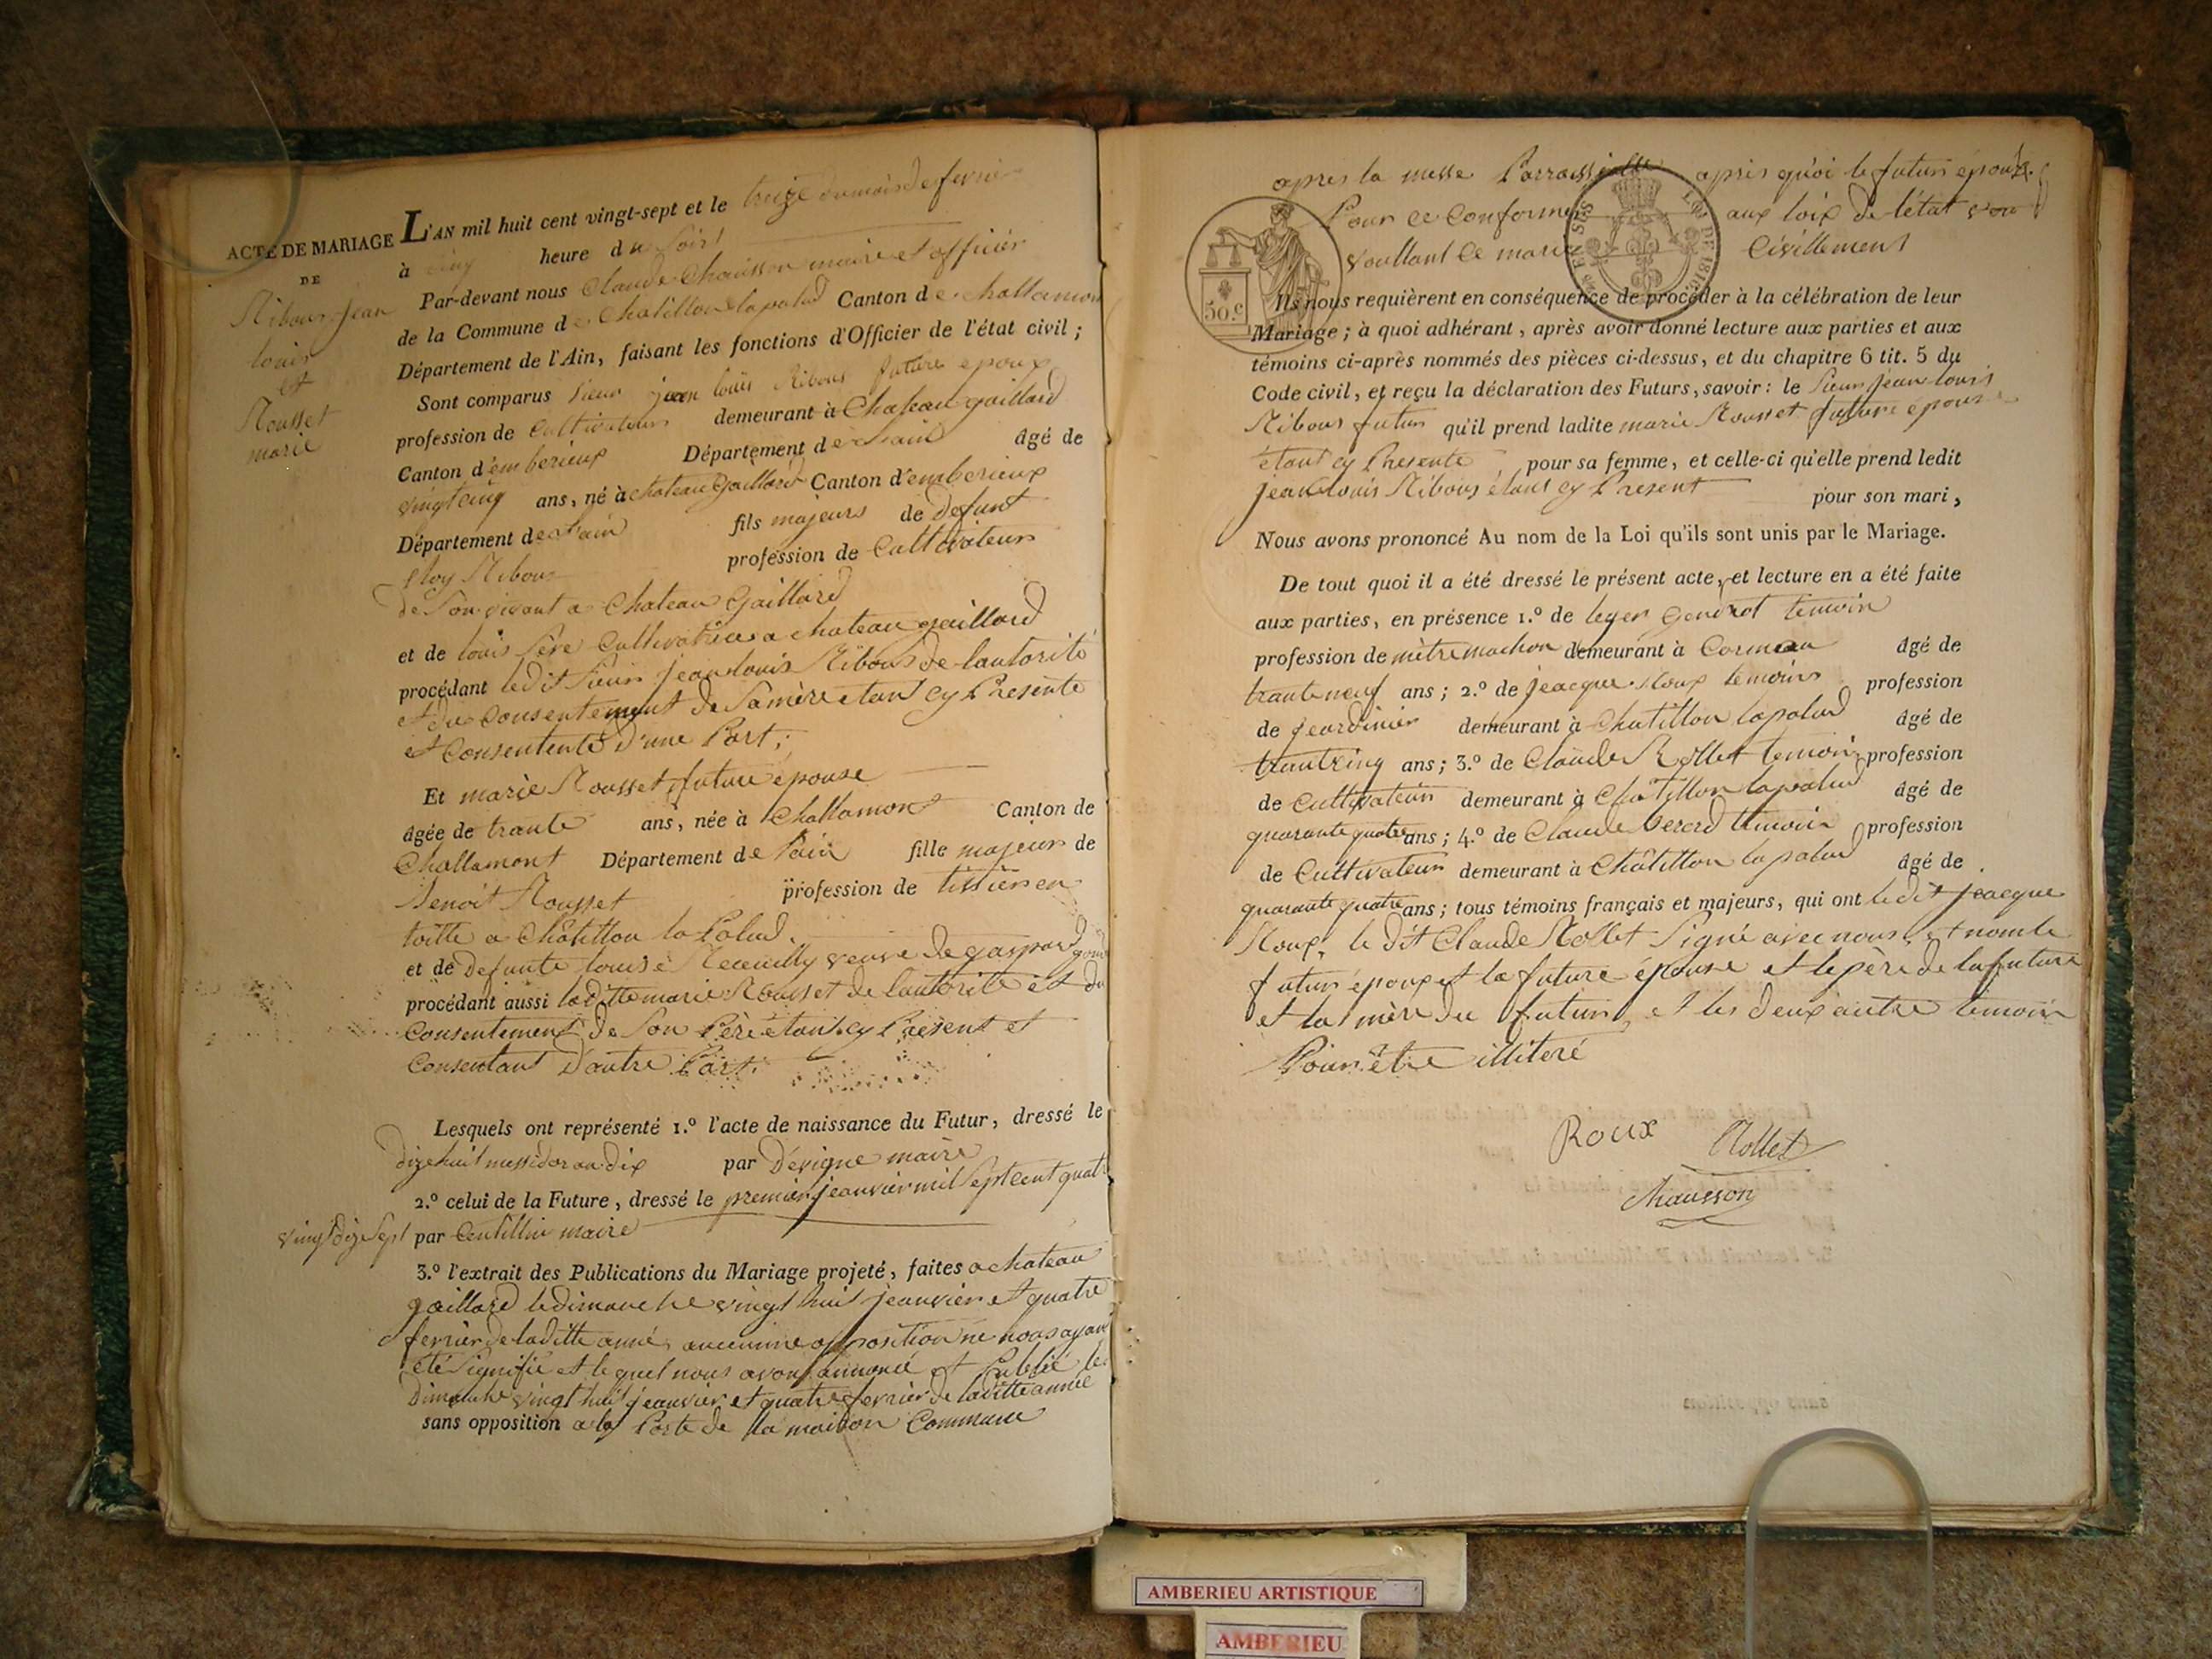 ACTE DE MARIAGE
DE
Ribous Jean
louis
et
Rousset
marie
L'AN mil huit cent vingt-sept et le treize du mois de fevrier
à cinq heure du Soirs
Par-devant nous Claude Chausson maire et officier
de la Commune de Chatillon lapalud Canton de challamon
Département de l'Ain, faisant les fonctions d'Officier de l'état civil ;
Sont comparus Sieur jean louis Ribous future epoux
profession de Cultivateurs demeurant à Chateau gaillard
Canton d'emberieux Département de Lain âgé de
vingt cinq ans, né à chateau Gaillard Canton d'emberieux
Département de Lain fils majeurs de defunt
Eloy Ribous profession de Cultivateurs
de Son vivant a Chateau Gaillard
et de louis Sève Cultivatrice a chateau gaillard
procédant ledit Sieur jean louis Ribous de lautorité
et du Consentement de Samère etant cy Présente
et Consentente d'une Part ;
Et marie Rousset future épouse
âgée de trante ans, née à Challamont Canton de
Challamont Département de Lain fille majeurs de
Benoit Rousset profession de tissier en
toille a Châtillon la Palud.
et de defunte louise veuve de gaspard
procédant aussi laditte marie Rousset de lautorité et du
Consentement de Son Père étant cy Présent et
Consentant D'autre Part.
Lesquels ont représenté 1.º l'acte de naissance du Futur, dressé le
dize huit messidor an dix par Dévigne maire
2.º celui de la Future, dressé le premier jeanvier mil Septcent quatre
vingt dize Sept par Centillin maire
3.º l'extrait des Publications du Mariage projeté, faites a chateau
gaillard le dimanche vingt huit jeanvier et quatre
fevrier de laditte année aucunne opposition ne nous ayant
été Signifié et lequel nous avons annoncé et Publié les
Dimanche vingt huit jeanvier et quatre fevrier de laditte année
sans opposition a la Porte de la maison Commune
apres la messe Parroissialle apris quoi le futur époux
Pour ce Conformer aux loix de l'état
voullant ce marier Civillement
50.c
Ils nous requièrent en conséquence de procéder à la célébration de leur
Mariage ; à quoi adhérant, après avoir donné lecture aux parties et aux
témoins ci-après nommés des pièces ci-dessus, et du chapitre 6 tit. 5 du
Code civil, et reçu la déclaration des Futurs, savoir : le Sieur jean louis
Ribous futur qu'il prend ladite marie Rousset future épouse
étant cy Présente, pour sa femme, et celle-ci qu'elle prend ledit
jean louis Ribous étant cy Présent pour son mari,
Nous avons prononcé Au nom de la Loi qu'ils sont unis par le Mariage.
De tout quoi il a été dressé le présent acte, et lecture en a été faite
aux parties, en présence 1.º de leger Gondrot temoin
profession de mètre machon demeurant à Cormoz âgé de
trante neuf ans ; 2.º de jeacque Roux temoins profession
de jeardinier demeurant à Chatillon lapalud âgé de
trant cinq ans ; 3.º de Claude Rollet temoin profession
de Cultivateur demeurant à Châtillon lapalud âgé de
quarante quatre ans ; 4.º de Claude berard temoin profession
de Cultivateur demeurant à Châtillon la palud âgé de
quarante quatre ans ; tous témoins français et majeurs, qui ont ledit jeacque
Roux, le dit Claude Rollet Signé avec nous, et non le
futur époux et la future épouse et le père de la future
et la mère du futur, et les deux autre temoin
Pour être illiteré
Roux Rollet
Chausson
AMBERIEU ARTISTIQUE
AMBERIEU